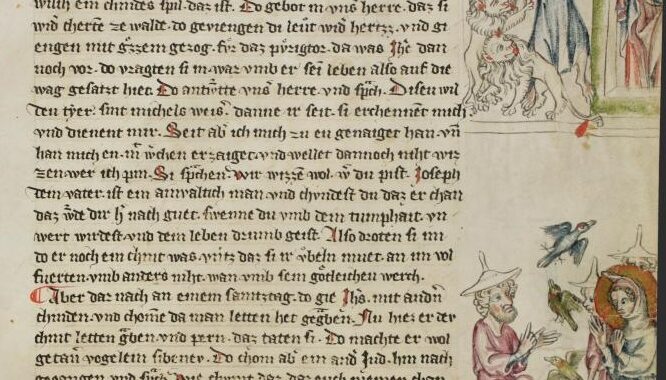 wurh ein chindes spil daz ist. Do gebot in vns herre. daz si
wid cherte ze walde. do geviengen di leut wid hertz. vnd gi
engen mit gzzem gezog. fvr daz pvrigtor. da was Ihc dan
noch vor. do vragten si in. war vmb er sei leben also auf die
wag gesatzt hiet. Do antwtte vns herre. vnd spch. Disev wil
den tyer. sint michels weis. danne ir seit. si erchennet mich
vnd dienent mir. Seit ab ich mich zu eu genaiget han. vn
han mich en. in wchen erzaiget. vnd wellet dannoch niht wiz
zen wer ich pin. Si sprachen. wir wizze wol. w du pist. Joseph
dein vater. ist ein anwaltich man. vnd chvndest du daz er chan
daz wde dir h nach guet. swenne du vmb dein tumphait. vn
wert wirdest. vnd dein leben drumb geist. Also droten si im
do er noch ein chint was. vntz daz si ir vbeln muet. an im vol
fuerten. vmb anders niht. wan vmb sein gotleichen werch.
Aber dar nach an einem samtztag. do gie Ihs. mit andn
chinden. vnd chome da man letten het gegben. Nu hiez er der
chint letten gben. vnd pern. daz taten si. Do machte er wol
getan vogelein sibener. Do chom ab ein and Jud. hin nach
gegangen. vnd spch.